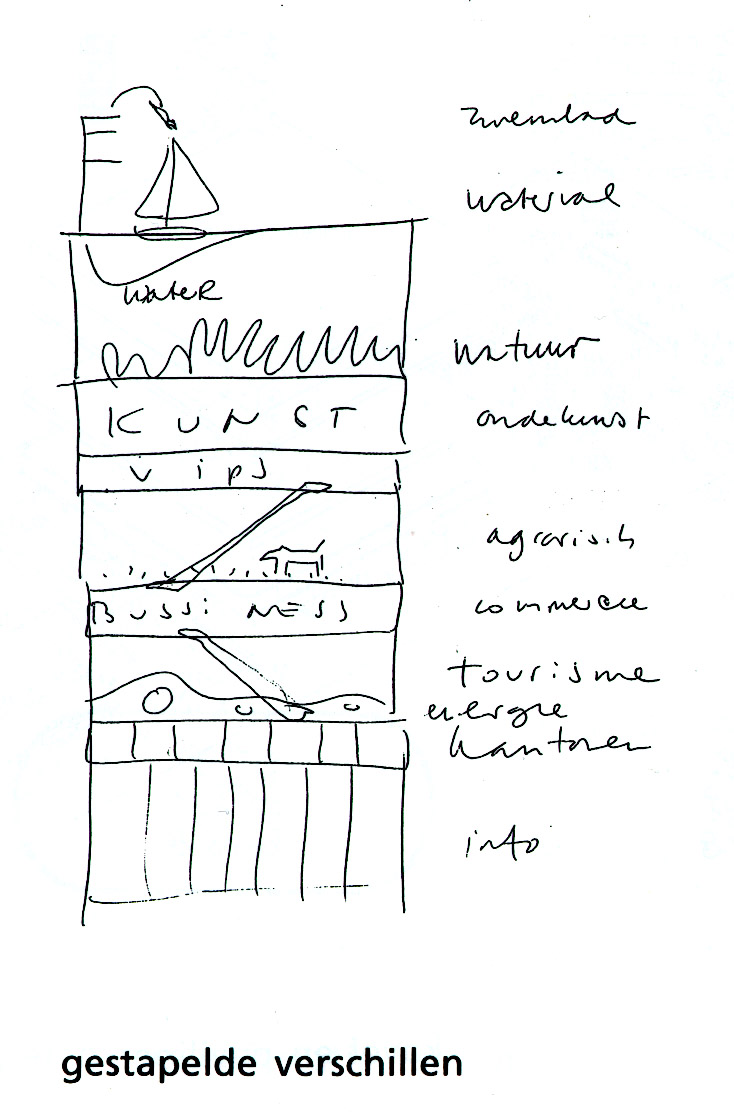 zwembad
waterval
WATER
natuur
KUNST
ondekunst
VIPS
agrarisch
BUSSiNESS
commercie
tourisme
energie
kantoren
info
gestapelde verschillen